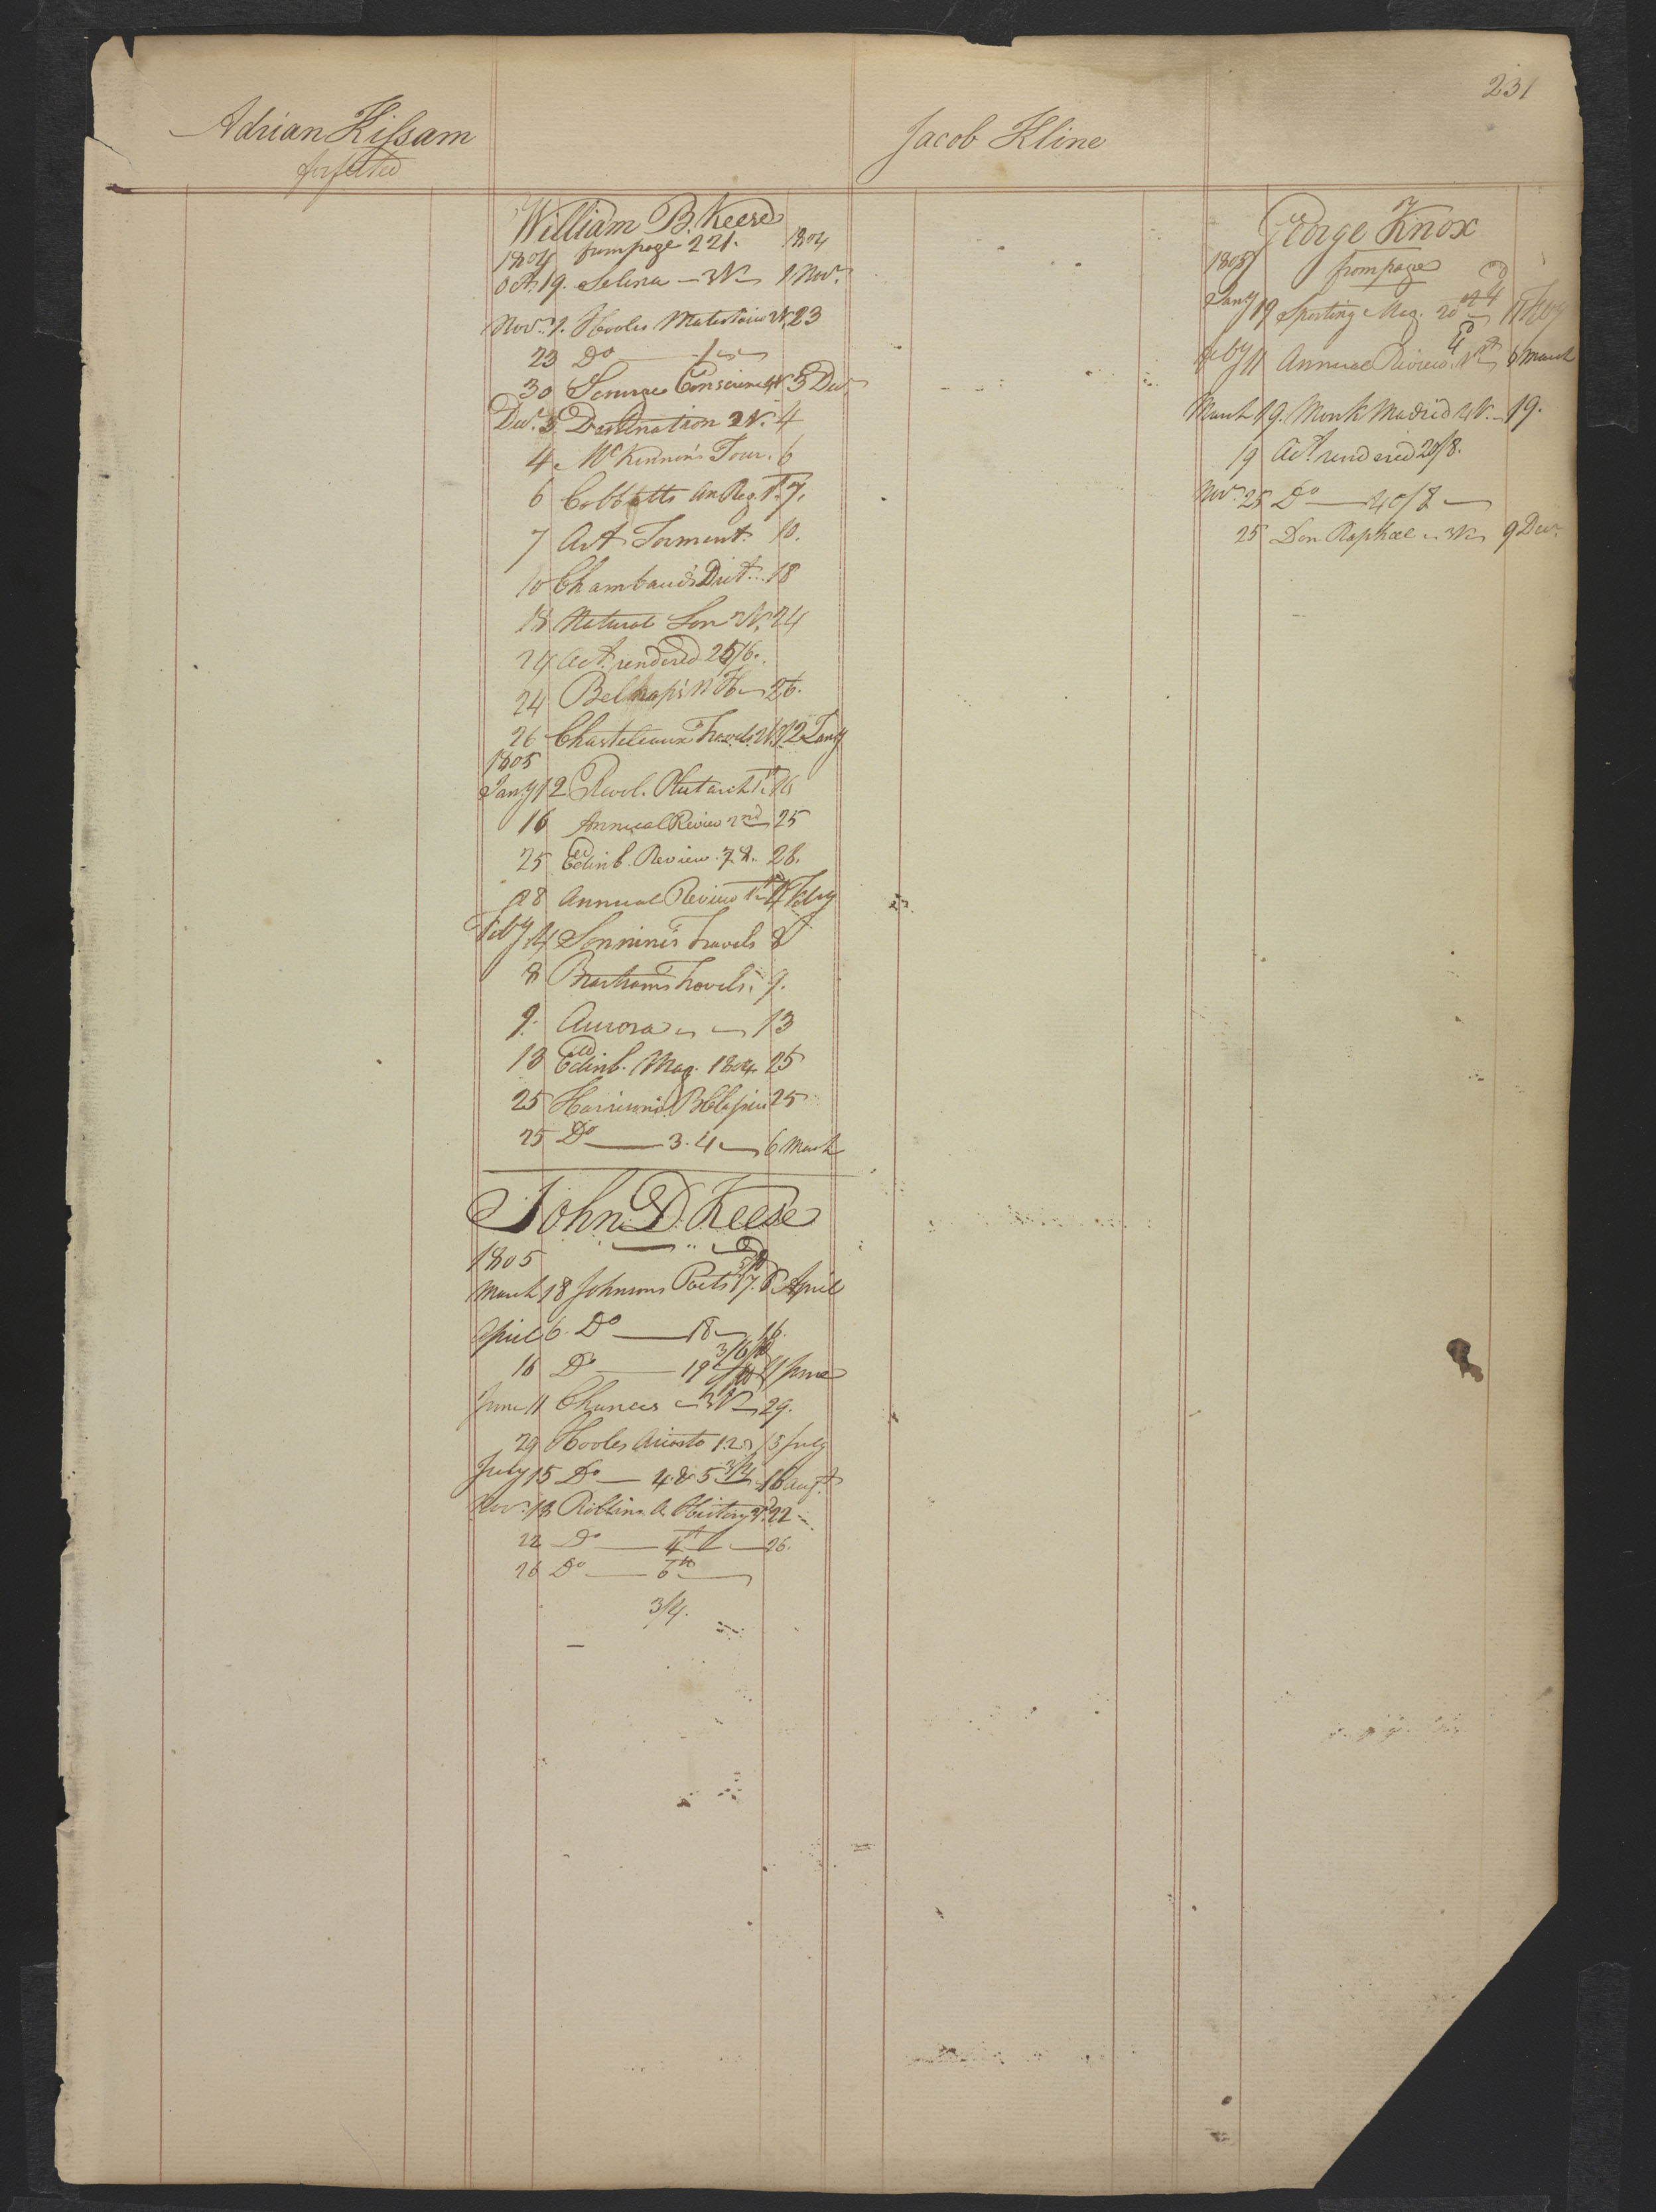 231
Adrian Kissam
forfeited
Jacob Kline
William B. Keese
1804 from page 221. 1804
Oct. 19. Selina 3V 1 Nov.
Nov. 1. Hooles Metastasio 2V. 23
23 Do
30 Scourge Conscience 4V 3 Dec.
Dec. 3. Destination 3V. 4
4. McKinnen's Tour. 6
6 Cobbetts An Reg 1st. 7.
7 Art Torment. 10.
10 Chambaud's Dict. 18
18 Natural Son 2V. 24
24 Act. rendered 25/6.
24 Belknap's N H 26.
26 Chasteleaux Travels. 2V. 12 Jany
1805
Jany 12 Revol. Plutarch 1st. 16
16 Annual Review 2nd 25
25 Edinb. Review. 7.8. 28.
28 Annual Review 1st 4 Feby
Feby 4 Sonnini's Travels 8
8 Bartram's Travels. 9.
9. Aurora 13
13 Edinb. Mag. 1804. 25
25 Harwood's B Classics 25
25 Do 3. 4 6 March
John D. Keese
1805
March 18 Johnsons Poets 17. 6 April
April 6. Do 18 16.
16 Do 19 3/6 11 June
June 11 Chances 3V 29.
29 Hooles Ariosto 1.2. 15 July
July 15 Do 4 & 5 3/4 16 Augt.
Nov. 18 Rollins A History 3d. 22
22 Do 4th 26.
26 Do 6th
3/4.
George Knox
1805 from page
Jany 19 Sporting Mag. 20 11 Feby
Feby 11 Annual Review. 1st 8 March
March 19. Monk Madrid 4V. 19.
19 Act. rendered 20/8.
Nov. 25 Do 40/8
25 Don Raphael 3V 9 Dec.